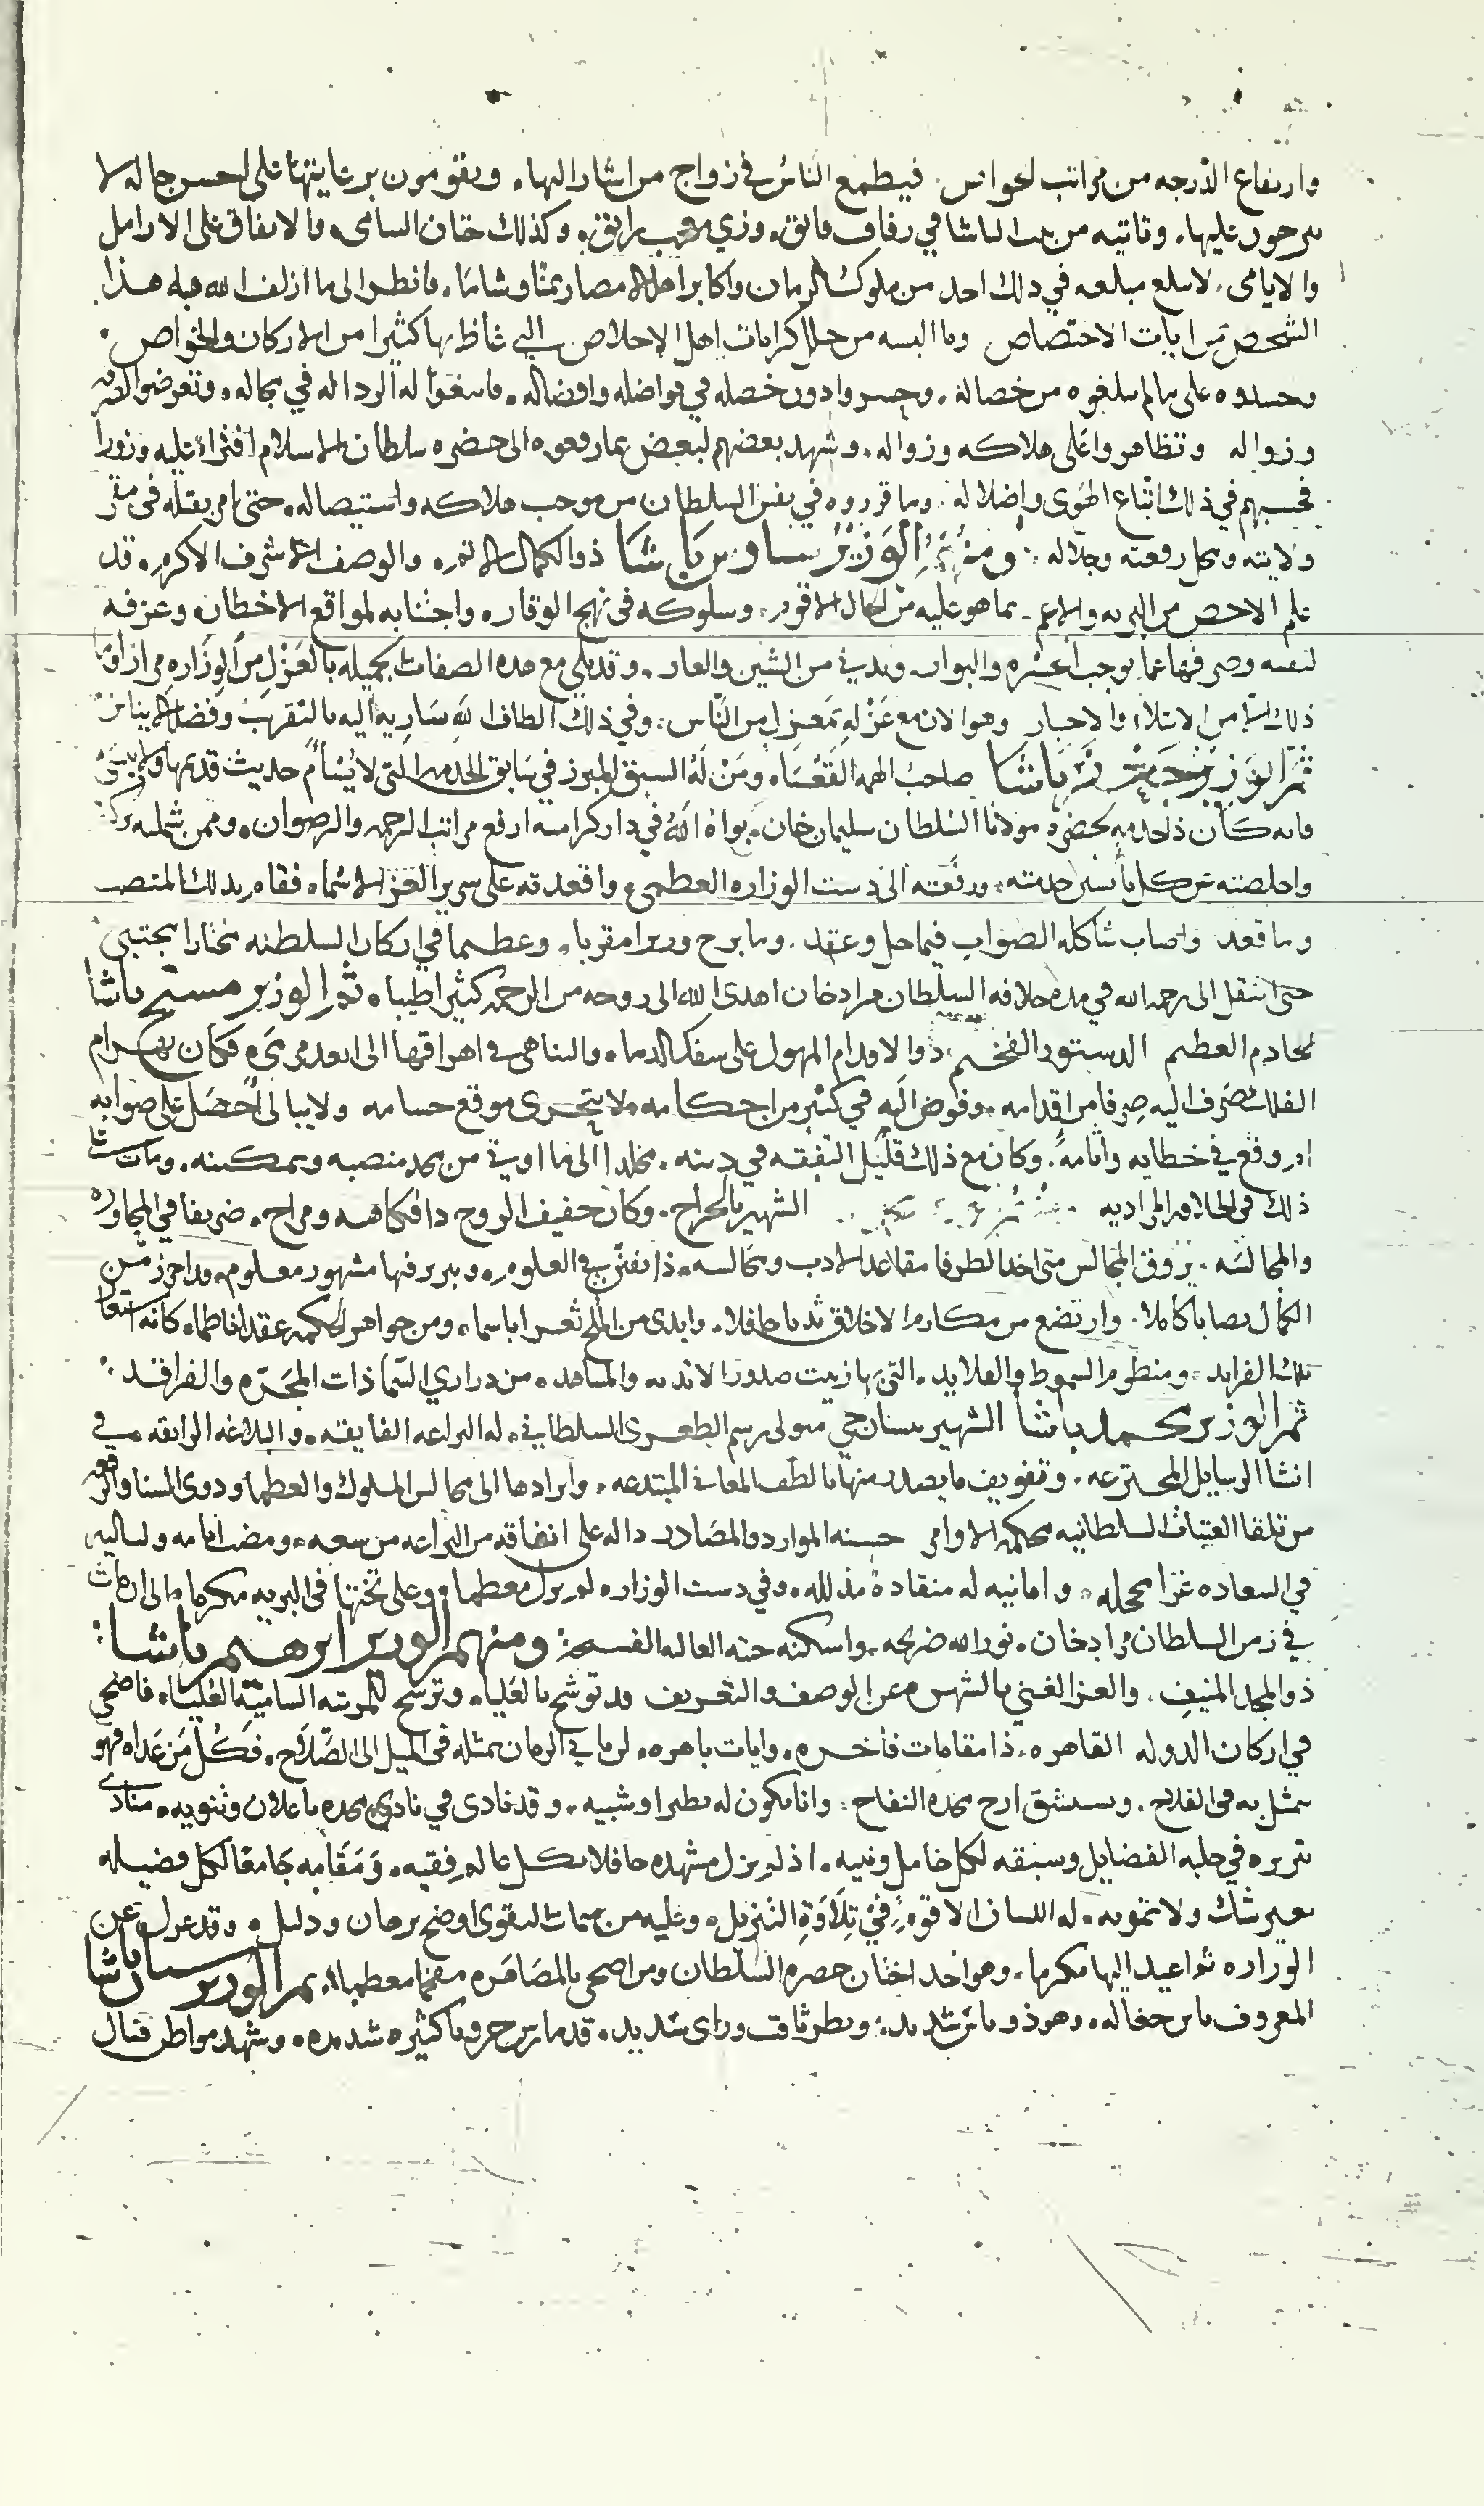 وارتفاع الدرجه من مراتب الخواص. فيطمع الناس في زواج من اشار اليها. ويقومون برعايتها على احسن حاله لا
عليها. وتاتيه من الباشا في زفاف فائق. وزي معجب رائق. وكذلك ختان السامى والانفاق على الارامل
والايامى. لا يبلغ مبلغه في ذلك احد من ملوك الزمان واكابر اهل الامصار يمنًا وشامًا. فانظر الى ما ازلف الله هذا
الشخص من ايات الاختصاص. وما البسه من حلل كرامات اهل الاخلاص التي غاظ بها كثيرا من الاركان والخواص.
وحسدوه على ما لم يبلغوه من خصاله. وخسروا دون خصله في فواضله وافضاله. فابتغوا له الردا له في مجاله. وتعرضوا
وزواله وتظاهروا على هلاكه وزواله. وشهد بعضهم لبعض بما رفعوه الى حضره سلطان الاسلام افتراء عليه وزورا
فحسبهم في ذلك اتباع الهوى واضلاله. وما قرروه في نفس السلطان من موجب هلاكه واستيصاله. حتى امر بقتله في مقر
ولايته ومحل رفعته وجلاله. ومنهم الوزير سياوس باشا ذو الكمال الاتم. والوصف الاشرف الاكرم. قد
علم الاخص من البريه والاعم. بما هو عليه من الحال الاقوم. وسلوكه في نهج الوقار. واجتنابه لمواقع الاخطار. وعزفه
لنفسه وصرفها عما يوجب العثره والبوار. ويدني من الشين والعار. وقد بلي مع هذه الصفات الجميله بالعزل من الوزاره مرارا وما
ذلك الا من الابتلاء والاختبار وهو الان مع عزله بمعزل من الناس. وفي ذلك الطاف الله ساريه اليه بالتقريب وفضل الايناس
ثم الوزير باشا صاحب الهمه القعساء. ومن له السبق المبرز في سابق الخدمه التي لا يسأم حديث قديمها ولا ينسى
فانه كان ذا خدمه لحضرة مولانا السلطان سليمان خان. بواه الله في دار كرامته ارفع مراتب الرحمه والرضوان. وممن شملته
واخلصته عن كل باس خدمته. ورفعته الى دست الوزاره العظمى. واقعدته على سرير العز الاسما. فقام بذلك المنصب
وما قعد واصاب شاكله الصواب فيما حل وعقد. وما برح وزيرا مقربا. وعظيما في اركان السلطنه مختارا مجتبى
حتى انتقل الى رحمه الله في مده خلافه السلطان مراد خان اهدى الله الى روحه من الرحمه كثيرا طيبا. ثم الوزير مسيح باشا
الخادم العظيم الدستور الفخيم. ذو الاقدام المهول على سفك الدماء. والتناهي في اهراقها الى ابعد مرمى. فكان بهرام
الفلك صرف اليه صرفا من اقدامه. وفوض اليه في كثير من احكامه. لا يتحرى موقع حسامه ولا يبالى احصل على صوابه
ام وقع في خطايه واثامه. وكان مع ذلك قليل التفقه في دينه. مخلدا الى ما اوتي من مجد منصبه وتمكينه. ومات على
ذلك في الخلافه المراديه الشهير بالجراح. وكان خفيف الروح ذا فكاهه ومزاح. ضريفا في المحاوره
والمجالسه. يروق المجالس متى اخذ الظرفا مقاعد الادب ومجالسه. ذا تفنن في العلوم. وتبريز فيها مشهور معلوم. قد احرز من
الكمال نصابا كاملا. وارتضع من مكارم الاخلاق ثديا حافلا. وابدى من الملح ثغرا باسما. ومن جواهر الحكمه عقدا ناظما. كانه
تلك الفرايد. ومنظوم السموط والقلايد. التي بها زينت صدور الانديه والمشاهد. من دراري السماء ذات المجره والفراقد.
ثم الوزير محمد باشا الشهير بنشانجي متولي رسم الطغرى السلطاني. له البراعه الفايقه. والبلاغه الرايقه في
انشا الرسايل المخترعه. وتفويف ما يصدر منها بالطف المعاني المبتدعه. وايرادها الى مجالس الملوك والعظما وذوي السنا والرفعه
من تلقا العتبات السلطانيه محكمه الاوامر حسنه الموارد والمصادر داله على انفاقه من البراعه من سعه. ومضت ايامه ولياليه
في السعاده غرا محجله. وامانيه له منقادة مذلله. وفي دست الوزاره لم يزل معظما. وعلى تختها في البريه مكرما. الى ان مات
في زمن السلطان مراد خان. نور الله ضريحه. واسكنه جنته العاليه الفسيحه. ومنهم الوزير ابرهيم باشا:
ذو المجد المنيف. والعز الغني بالشهره عن الوصف والتعريف قد توشح بالعليا. وترشح للمرتبه الساميه العليا. فاضحى
في اركان الدوله القاهره. ذا مقامات فاخره. وايات باهره. لم يات الزمان بمثله في الميل الى الصلاح. فكل من عداه فهو
يمثل به في الفلاح. ويستنشق ارج مجده النفاح. وانا يكون له نظير او شبيه. وقد نادى في نادي مجده باعلان وتنويه. منادى
تبريزه في حلبه الفضايل وسبقه لكل خامل ونبيه. اذ لم يزل مشهده حافلا بكل عالم فقيه. ومقامه جامعا لكل فضيله
بغير شك ولا تمويه. له اللسان الاقوم في تلاوة التنزيل. وعليه من سمات التقوى اوضح برهان ودليل. وقد عزل عن
الوزاره ثم اعيد اليها مكرما. وهو احد اختان حضره السلطان ومن اضحى بالمصاهره مفخما معظما. ثم الوزير سنان باشا
المعروف بابن جغاله. وهو ذو باس شديد. ونظر ثاقب وراى سديد. قد مارس حروبا كثيره شديده. وشهد مواطن قتال